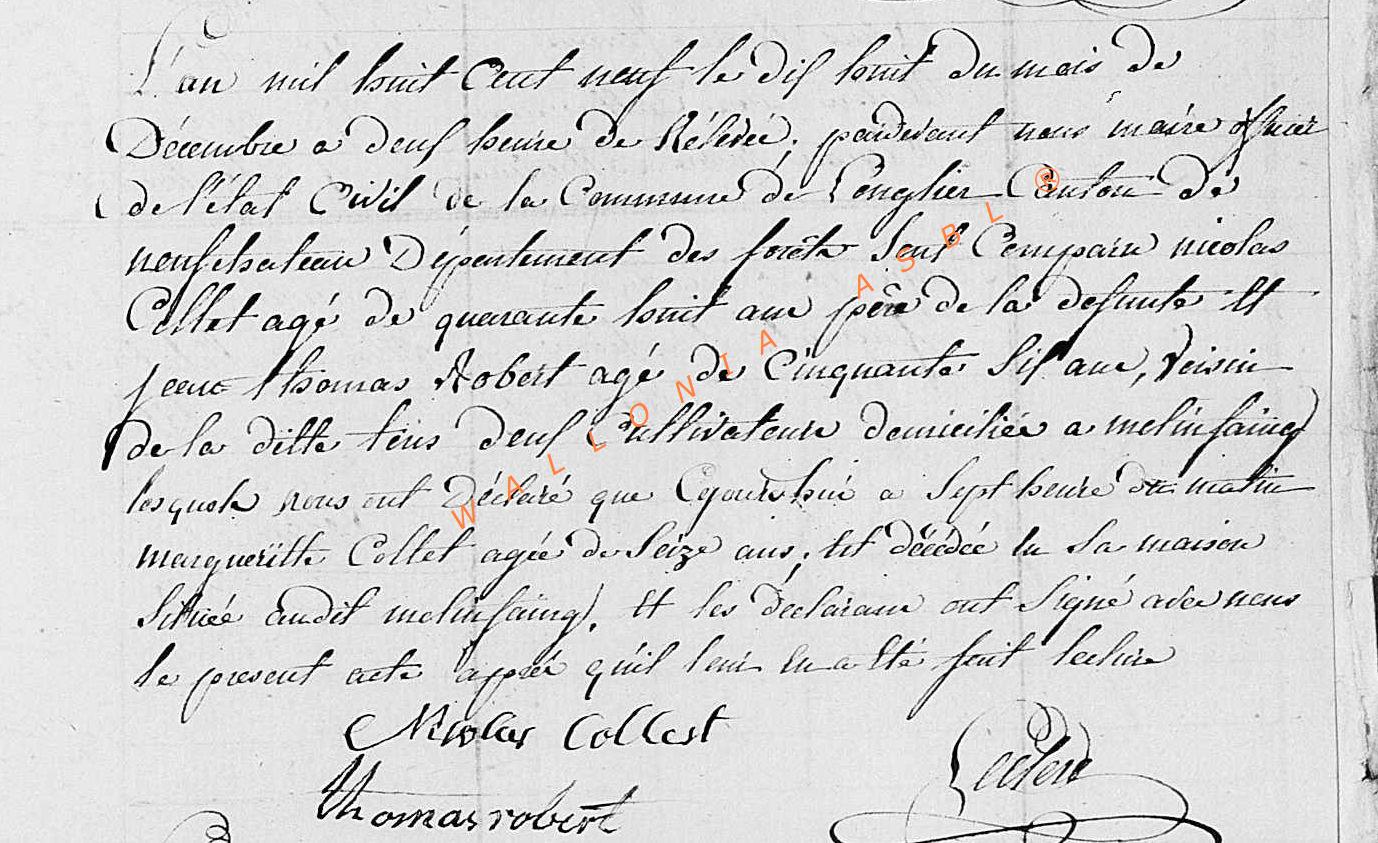 L'an mil huit Cent neuf le dix huit du mois de
Décembre a deux heure de Rélevée; pardevant nous maire officier
de l'état Civil de la Commune de Longlier Canton de
neufchateau Département des forêts sont Comparu nicolas
Collet agé de quarante huit ans père de la defunte Et
jean thomas Robert agé de Cinquante Six ans, Voisin
de la ditte tous deux Cultivateurs domiciliés a molinfaing
lesquels nous ont Déclaré que Cejourd'hui a Sept heure du matin
margueritte Collet agée de Seize ans; Est décédée En Sa maison
Située audit molinfaing. Et les déclarans ont Signé avec nous
le present acte après qu'il leur En a Eté fait lecture
Nicolas Collet
Leclerc
thomas robert
WALLONIA ASBL ®